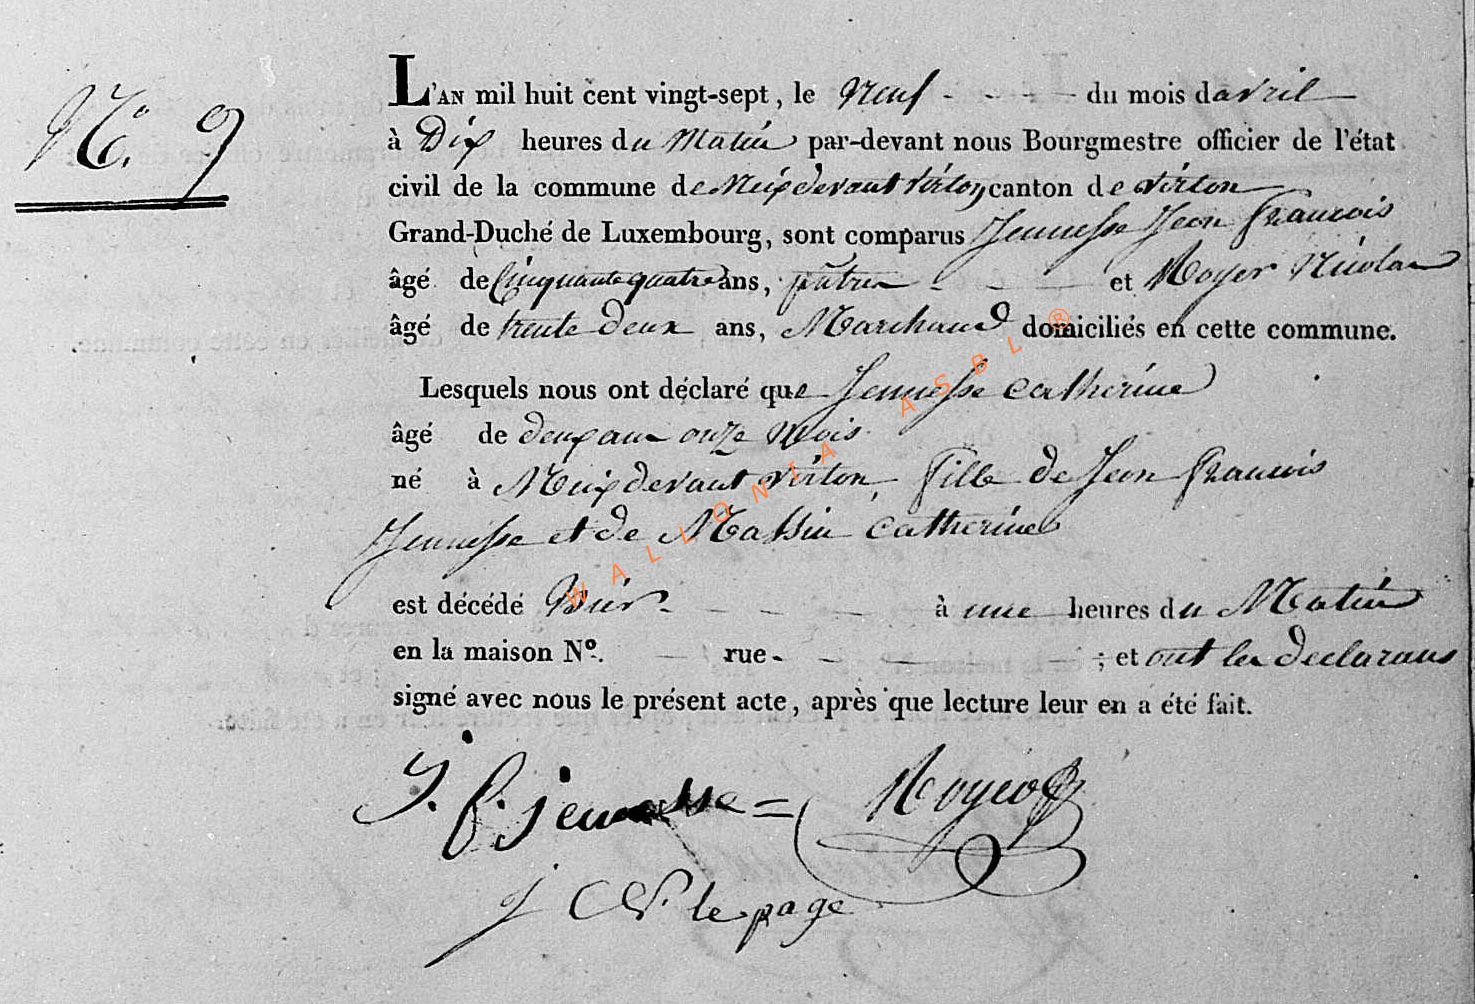 N.º 9
L'AN mil huit cent vingt-sept, le Neuf - - - - du mois d avril
à Dix heures du Matin par-devant nous Bourgmestre officier de l'état
civil de la commune de Meix devant virton canton de virton
Grand-Duché de Luxembourg, sont comparus Jeunesse Jean François
âgé de Cinquante quatre ans, patre - - - et Moyer Nicolas
âgé de trente deux ans, Marchand domiciliés en cette commune.
Lesquels nous ont déclaré que Jeunesse Catherine
âgé de deux ans onze Mois
né à Meix devant virton, fille de Jean François
Jeunesse et de Massin Catherine
est décédé hier - - - - à une heures du Matin
en la maison Nº. - rue - - - - - ; et ont les declarans
signé avec nous le présent acte, après que lecture leur en a été fait.
J. f. jeunesse = 
j C lepage
WALLONIA ASBL ®